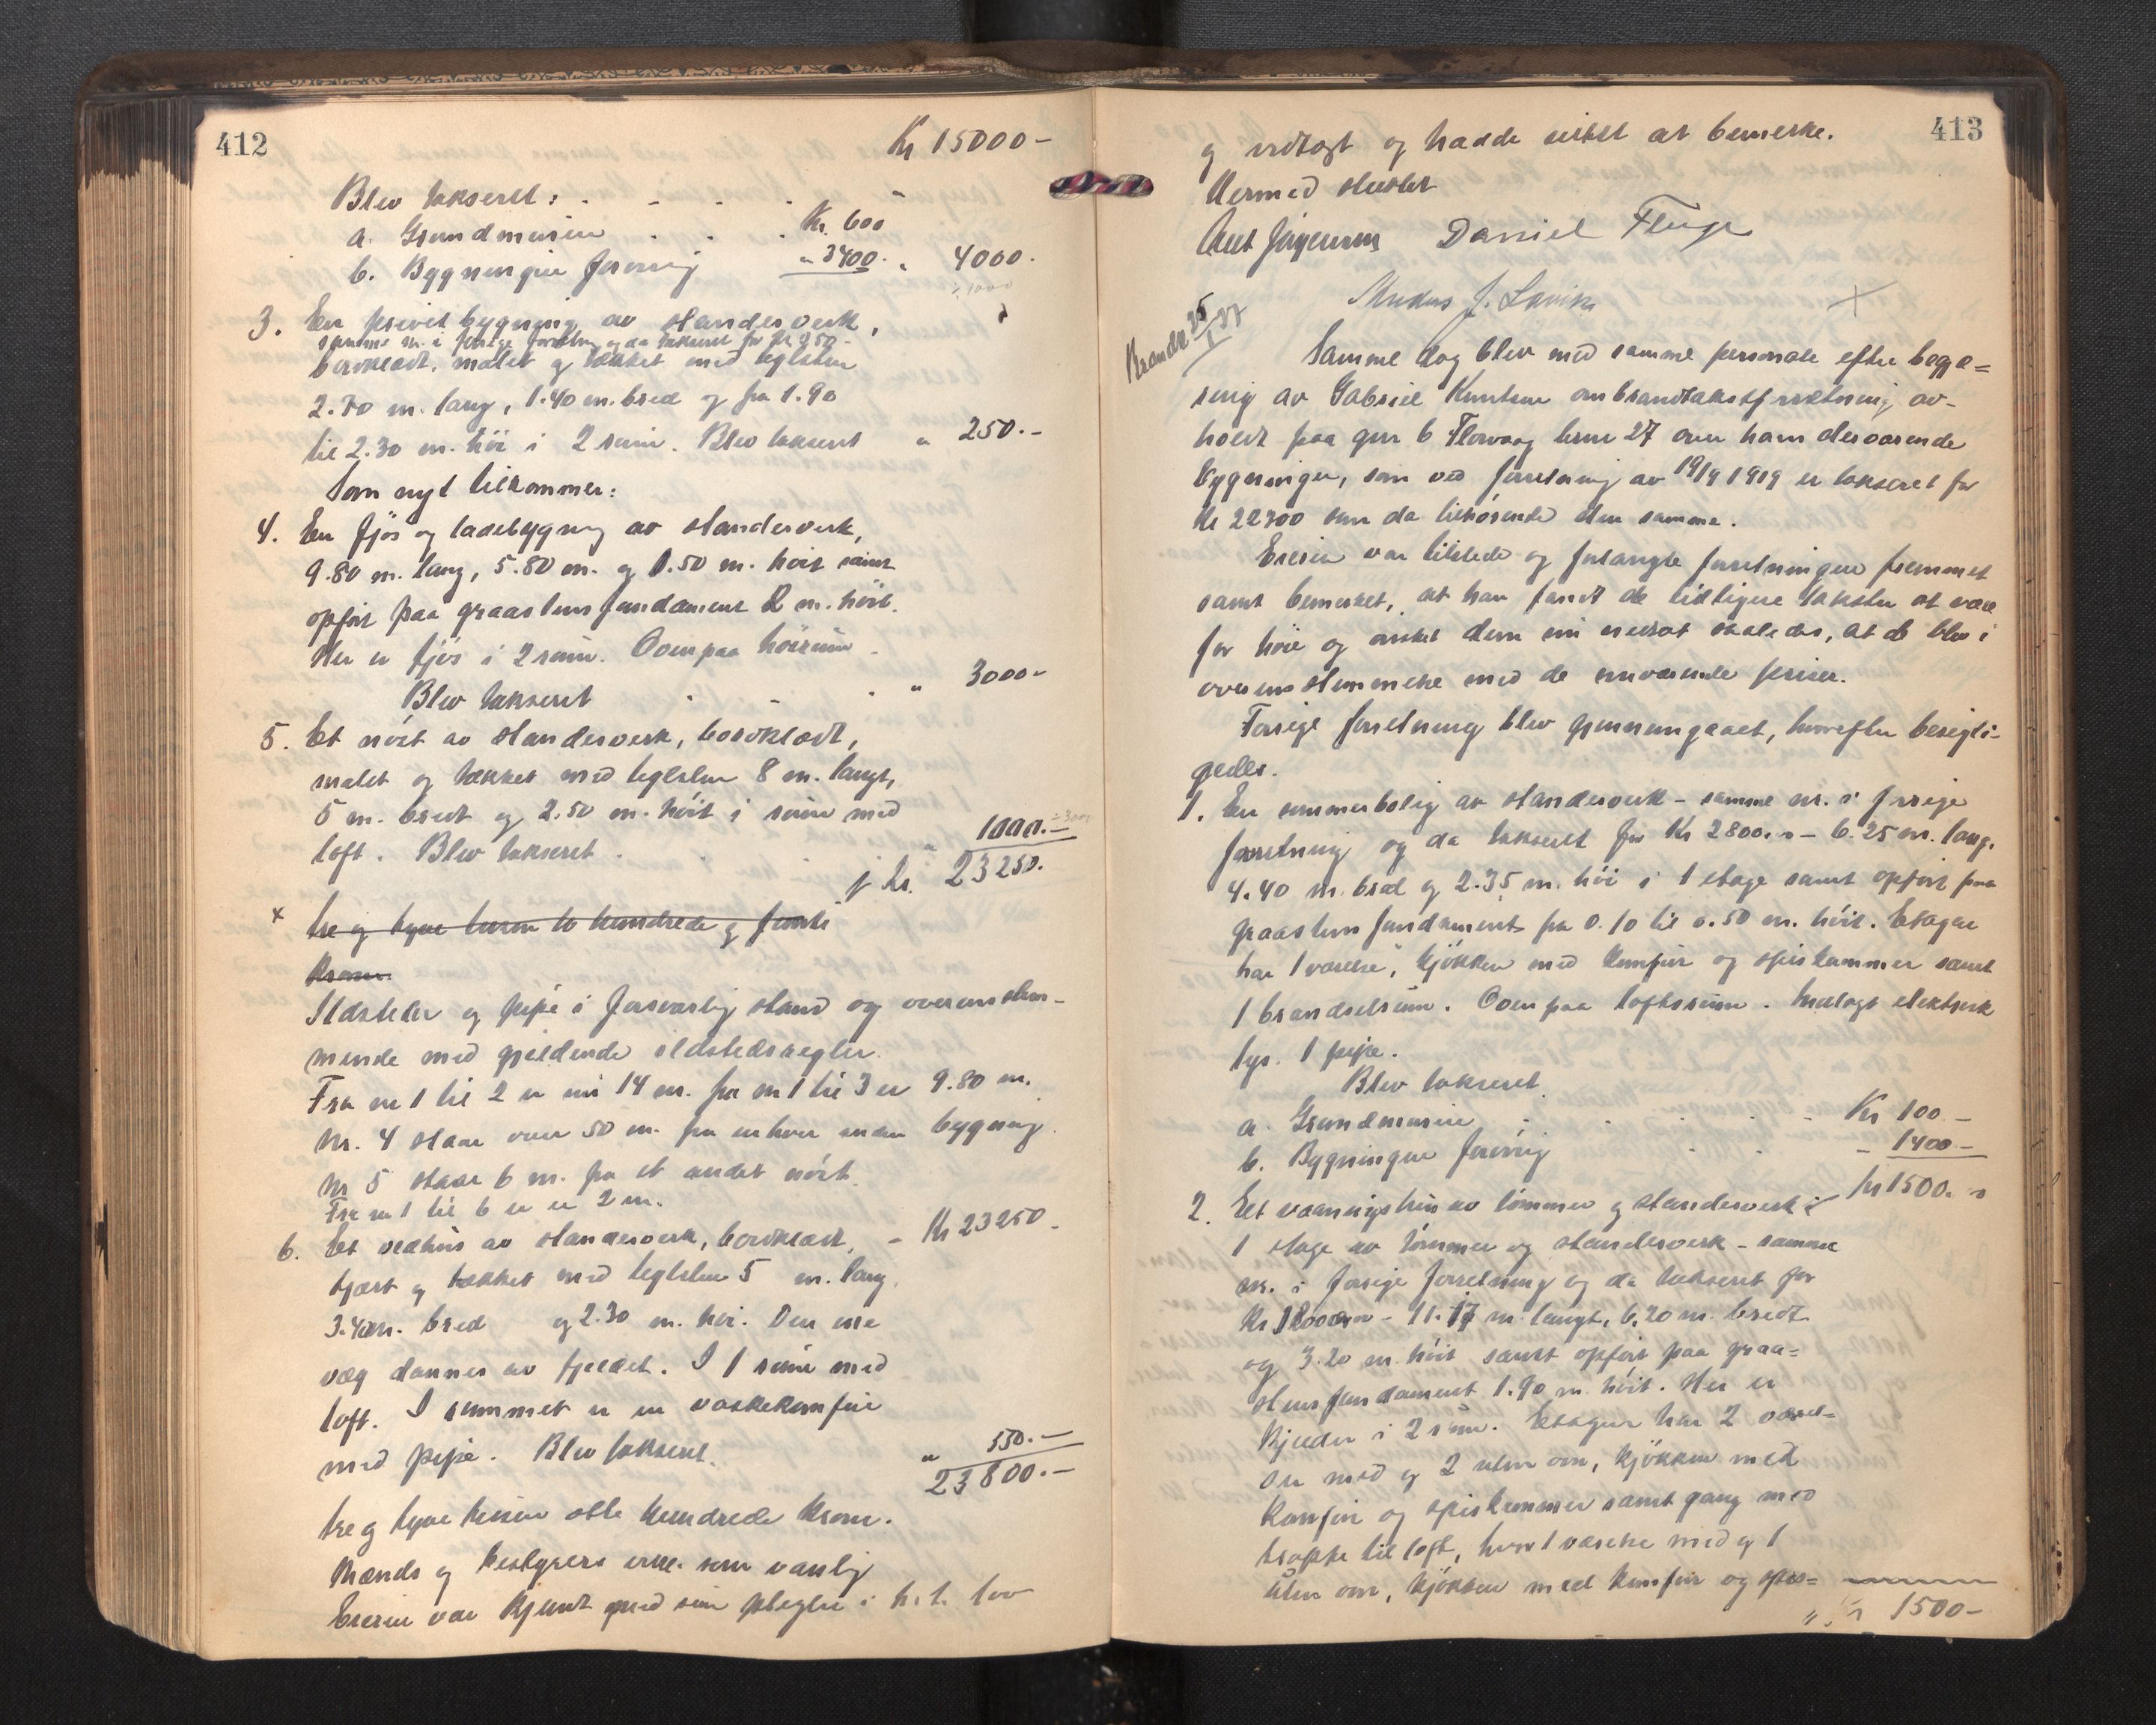 412
Kr 15000-
Blev takseret:
a. Grundmuren Kr. 600
b. Bygningen forøvrig " 3400. " 4000.
÷ 1000
3. En privetbygning av standerverk,
samme nr. i forrige forretning og da takseret for Kr 250-
bordklædt, malet og tækket med teglsten
2.70 m. lang, 1.40 m. bred og fra 1.90
til 2.30 m. høi i 2 rum. Blev takseret " 250.-
Som nyt tilkommer:
4. En fjøs og ladebygning av standerverk,
9.80 m. lang, 5.80 m. og .50 m. høit samt
opført paa graastensfundament 2 m. høit.
Her er fjøs i 2 rum. Ovenpaa høirum
Blev takseret " 3000-
5. Et nøst av standerverk, bordklædt,
malet og tækket med teglsten 8 m. langt,
5 m. bredt og 2.50 m. høit i 1 rum med
loft. Blev takseret " 1000.-
Kr. 23250.
x tre og tyve tusen to hundrede og femti
kroner
Ildsteder og pipe i forsvarlig stand og overensstem-
mende med gjeldende ildstedsregler.
Fra nr 1 til 2 er nu 14 m. fra nr 1 til 3 er 9.80 m.
Nr. 4 staar over 50 m. fra enhver anden bygning.
Nr 5 staar 6 m. fra et andet nøst.
Fra nr 1 til 6 er 2 m.
6. Et vedhus av standerverk, bordklædt, - Kr 23250-
tjæret og tækket med teglsten 5 m. lang,
3.40 m. bred og 2.30 m. høi. Den ene
væg dannes av fjeldet. I 1 rum med
loft. I rummet er en vaskekomfur
med pipe. Blev takseret. " 550.-
23800.-
tre og tyve tusen otte hundrede kroner.
Mænds og bestyrers erkl. som vanlig
Eieren var kjendt med sine pligter i h. t. lov
413
og vedtægt og hadde intet at bemerke.
Hermed sluttet
Daniel Fluge
J. Lavik
x
25/1 37
Samme dag blev med samme personale efter begjæ=
ring av Gabriel Knutsen ombrandtakstforretning av-
holdt paa gnr 6 Florvaag brnr 27 over hans derværende
bygninger, som ved forretning av 19/9 1919 er takseret for
Kr 22300 som da tilhørende den samme.
Eieren var tilstede og forlangte forretningen fremmet
samt bemerket, at han fandt de tidligere takster at være
for høie og ønsket dem nu nedsat saaledes, at de blev i
overensstemmelse med de nuværende priser.
Forrige forretning blev gjennemgaaet, hvorefter besigti-
gedes.
1. En sommerbolig av standerverk - samme nr. i forrige
forretning og da takseret for Kr 2800.- - 6.25 m. lang.
4.40 m. bred og 2.35 m. høi i 1 etage samt opført paa
graastensfundament fra 0.10 til 0.50 m. høit. Etagen
har 1 værelse, kjøkken med komfur og spiskammer samt
1 brændselsrum. Ovenpaa loftsrum. Indlagt elektrisk
lys. 1 pipe.
Blev takseret.
a. Grundmuren Kr 100-
b. Bygningen forøvrig - 1400-
Kr 1500.-
2. Et vaaningshus av tømmer og standerverk i
1 etage av tømmer og standerverk - samme
nr. i forrige forretning og da takseret for
Kr 12000.- - 11.17 m. langt, 6.20 m. bredt
og 3.20 m. høit samt opført paa graa=
stensfundament 1.90 m. høit. Her er
kjelder i 2 rum. Etagen har 2 værel=
ser med og 2 uten ovn, kjøkken med
komfur og spiskammer samt gang med
trappe til loft, hvor 1 værelse med og 1
uten ovn, kjøkken med komfur og spis=
1500-